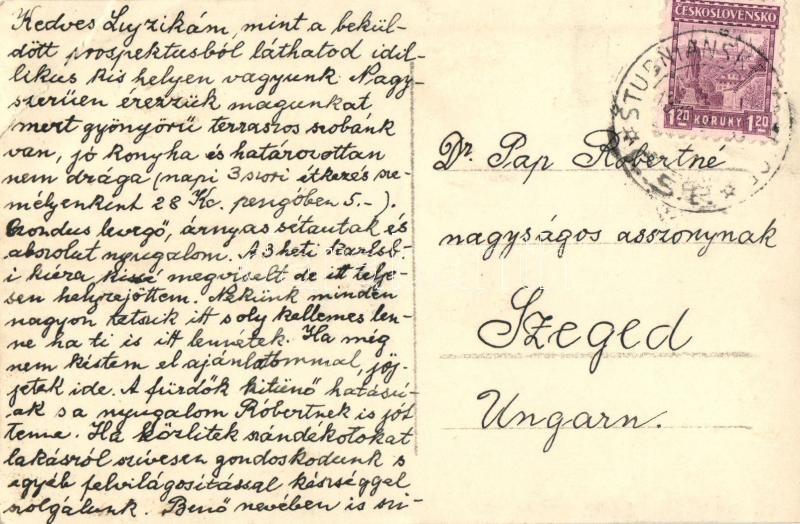 Kedves Lujzikám, mint a bekül-
dött prospektusból láthatod idil-
likus kis helyen vagyunk. Nagy-
szerüen érezzük magunkat
mert gyönyörű terraszos szobánk
van, jó konyha és határozottan
nem drága (napi 3 szori étkezés sze-
mélyenkint 28 Kc. pengőben 5.-).
Ozondus levegő, árnyas sétautak és
absolut nyugalom. A 3 heti karlsb-
i kúra kissé megviselt de itt telje-
sen helyrejöttem. Nekünk minden
nagyon tetszik itt s oly kellemes len-
ne ha ti is itt lennétek. Ha még
nem késtem el ajánlatommal, jöj-
jetek ide. A fürdők kitünő hatásu-
ak s a nyugalom Róbertnek is jót
tenne. Ha közlitek szándékotokat
lakásról szivesen gondoskodunk s
egyéb felvilágositással készséggel
szolgálunk. Benő nevében is szi-
ČESKOSLOVENSKO
1.20 KORUNY 1.20
Dr. Pap Róbertné
nagyságos asszonynak
Szeged
Ungarn.